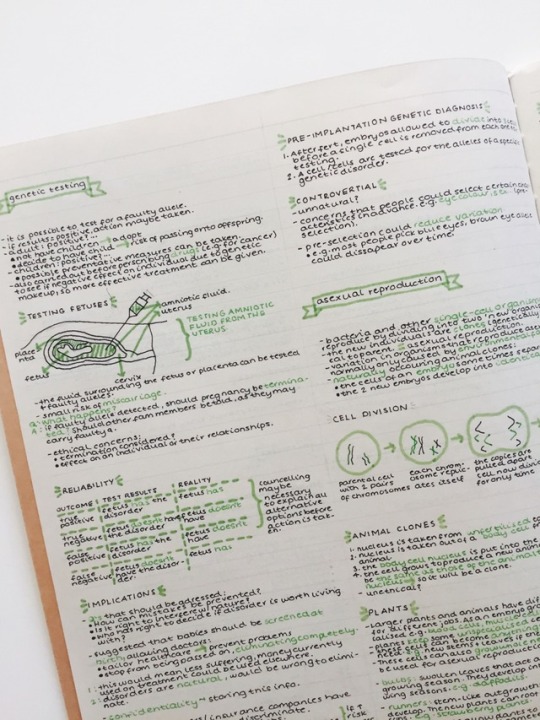 genetic testing
- it is possible to test for a faulty allele.
- if results = positive, action may be taken.
- adult: positive? ...
• not have children → adopt
• decide to have child → risk of passing onto offspring.
- children: positive? ...
• possible preventative measures can be taken.
- also carried out before perscribing drugs (e.g. for cancer)
to see if negative effect on individual due to genetic
makeup, so more effective treatment can be given.
TESTING FETUSES
amniotic fluid.
uterus
TESTING AMNIOTIC
FLUID FROM THE
UTERUS
place
nta
fetus
cervix
- the fluid surrounding the fetus or placenta can be tested
faulty alleles.
- small risk of miscarriage.
Q: what happens?
A: if faulty allele detected, should pregnancy be termina-
ted? should other fam members be told, as they may
carry faulty a.
- ethical concerns:
• termination considered?
• effect on an individual or their relationships.
RELIABILITY
OUTCOME TEST RESULTS REALITY
true positive fetus has the disorder fetus has
true negative fetus doesnt have the disorder fetus doesn't have
false positive fetus has the disorder fetus doesn't have
false negative fetus doesn't have the disorder. fetus has
councelling
maybe
necessary
to explain all
alternative
options before
action is tak-
en.
IMPLICATIONS
Q's that should be adressed:
• How can mistakes be prevented?
• Is it right to interfere w/ nature?
• who has right to decide if disorder is worth living
with?
- suggested that babies should be screened at
birth allowing doctors:
• tailor healthcare → prevent problems
• stop from being passed on, eliminating completely.
1: this would mean less suffering, money currently
used on treatment could be used elsewhere.
2: disorders are natural, would be wrong to elimi-
nate.
- confidentiality ~ storing this info.
insurance companies have
discriminate.
PRE-IMPLANTATION GENETIC DIAGNOSIS
1. After fert, embryos allowed to divide into
before a single cell is removed from each one
testing.
2. A cell/cells are tested for the alleles of a
genetic disorder.
CONTROVERTIAL
- unnatural?
- concerns that people could select certain
acteristics (inadvance. e.g. eye colour, sex
selection).
- pre-selection could reduce variation.
• e.g. most people pick blue eyes, brown eyes
could dissapear over time.
asexual reproduction
- bacteria and other single-cell organisms
reproduce by dividing into two 'new organisms'
- the new individuals are clones
cal to parent. = asexual reproduction.
- variation in organisms that reproduce
normally only caused by environmental
- naturally occouring animal clones
• the cells of an embryo some times separate
• the 2 new embryos develop into identical
CELL DIVISION
parental cell
with 2 pairs
of chromosomes
each chrom-
osome replic-
ates itself
the copies are
pulled apart.
cell now divides
for only time
ANIMAL CLONES
1. nucleus is taken from unfertilised
2. nucleus is taken out of a body cell
animal
3. the body cell nucleus is put into the
4. the cell grows to produce a new animal
be the same as those of the animal
nucleus → so it will be a clone.
- unethical?
PLANTS
- Larger plants and animals have
for different jobs. As an embryo
- plants keep some unspecialised
these cells can become anything
- These cells can also
be used for asexual reproduction
- bulbs: swollen leaves that are
growing season. They develop
ing seasons. e.g. daffodils.
- runners: stem-like outgrowths
develop. The new plants can